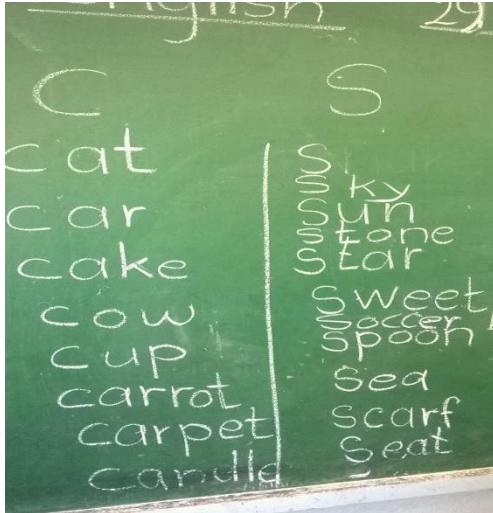 English 29
C
cat
car
cake
cow
cup
carrot
carpet
candle
S
S
Sky
Sun
Stone
Star
Sweet
Soccer
Spoon
Sea
Scarf
Seat